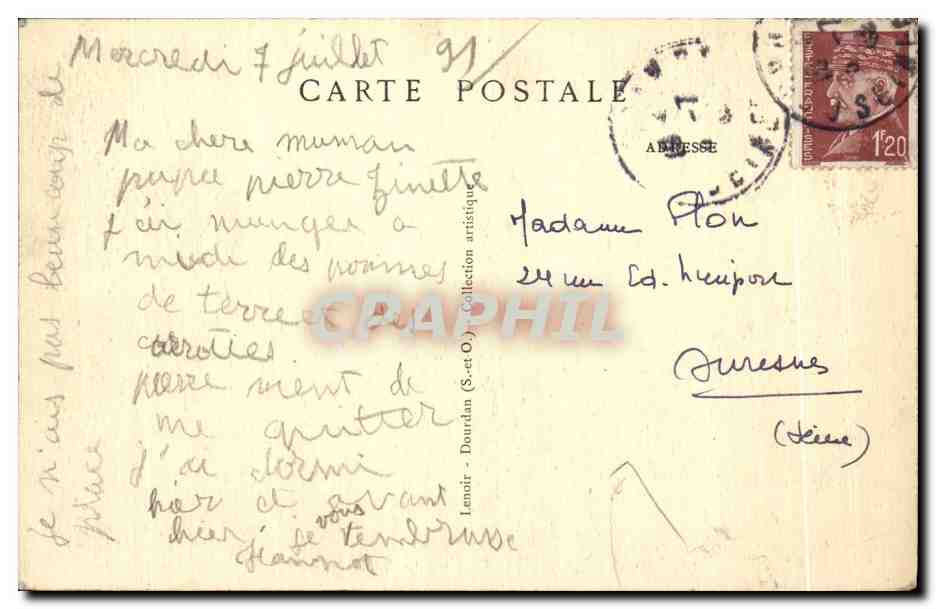 Mercredi 7 juillet
CARTE POSTALE
Ma chere maman
pierre finette
j'ai manger a
midi des pommes
de terre et des
carottes
pierre vient de
me quitter
j'ai dormi
hier et avant
hier je vous t'embrasse
Jeannot
je n'ais pas beaucoup de
place
Lenoir - Dourdan (S.-et-O.) - Collection artistique
ADRESSE
Madame Plon
24 rue Ed.
Suresnes
(Seine)
1F20
CPAPHIL